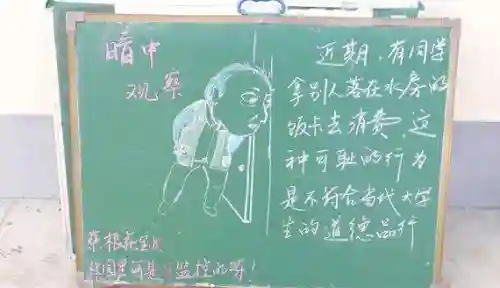 暗中
观察
近期,有同学
拿别人落在水房的
饭卡去消费,这
种可耻的行为
是不符合当代大学
生的道德品行
校园里可是有监控的呀!